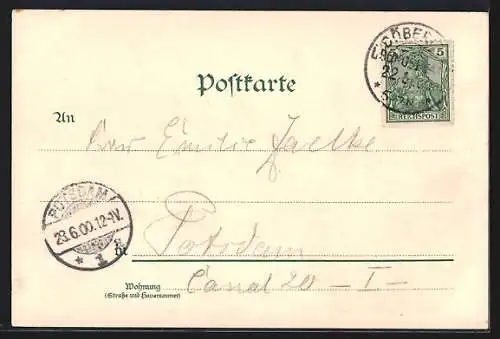 Postkarte
5
REICHSPOST
An
Frau Emilie
POTSDAM
23.6.00.12-1V.
* 1
in Potsdam
Wohnung
(Straße und Hausnummer)
Canal 20 - I -